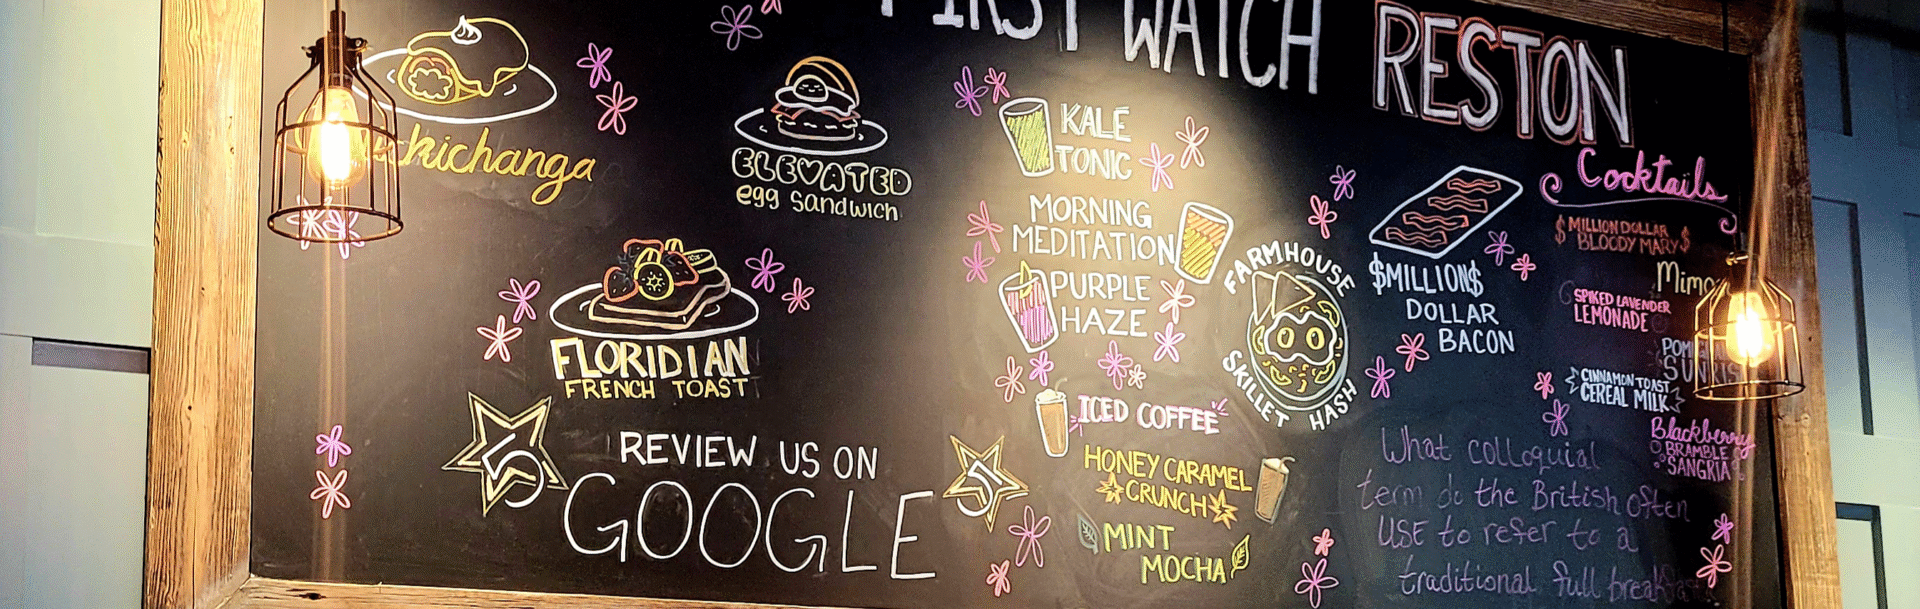 FIRST WATCH RESTON
kichanga
ELEVATED
egg sandwich
FLORIDIAN
FRENCH TOAST
5
REVIEW US ON
GOOGLE
5
KALE
TONIC
MORNING
MEDITATION
PURPLE
HAZE
ICED COFFEE
HONEY CARAMEL
CRUNCH
MINT
MOCHA
FARMHOUSE
SKILLET HASH
$MILLION$
DOLLAR
BACON
Cocktails
$ MILLION DOLLAR $
BLOODY MARY
Mimo
SPIKED LAVENDER
LEMONADE
POM
SUNRIS
CINNAMON TOAST
CEREAL MILK
Blackberry
BRAMBLE
SANGRIA
What colloquial
term do the British often
USE to refer to a
traditional full breakfast